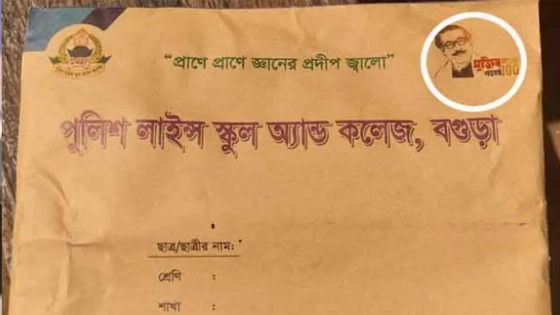 “প্রাণে প্রাণে জ্ঞানের প্রদীপ জ্বালো”
মুজিব
100
পুলিশ লাইন্স স্কুল অ্যান্ড কলেজ, বগুড়া
ছাত্র/ছাত্রীর নাম:
শ্রেণি :
শাখা :